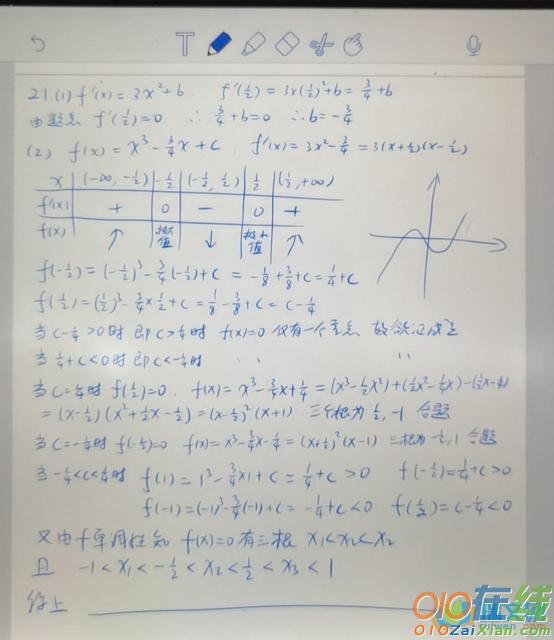 21.(1) f'(x)=3x²+b  f'(½)=3×(½)²+b=¾+b
由题意 f'(½)=0 ∴ ¾+b=0 ∴b=-¾
(2) f(x)=x³-¾x+c  f'(x)=3x²-¾=3(x+½)(x-½)
x (-∞,-½) -½ (-½,½) ½ (½,+∞)
f'(x) + 0 - 0 +
f(x) ↑ 极大值 ↓ 极小值 ↑
f(-½)=(-½)³-¾(-½)+c=-⅛+⅜+c=¼+c
f(½)=(½)³-¾×½+c=⅛-⅜+c=c-¼
当c-¼>0时 即c>¼时 f(x)=0 仅有一个零点 故欲证成立
当¼+c<0时 即c<-¼时 〃 〃
当c=¼时 f(½)=0. f(x)=x³-¾x+¼=(x³-½x²)+(½x²-¼x)-(½x-¼)
=(x-½)(x²+½x-½)=(x-½)²(x+1) 三根为½,-1 合题
当c=-¼时 f(-½)=0 f(x)=x³-¾x-¼=(x+½)²(x-1) 三根为-½,1 合题
当-¼<c<¼时 f(1)=1³-¾×1+c=¼+c>0 f(-½)=¼+c>0
f(-1)=(-1)³-¾(-1)+c=-¼+c<0 f(½)=c-¼<0
又由f单调性知 f(x)=0有三根 x₁<x₂<x₂
且 -1<x₁<-½<x₂<½<x₃<1
综上
010在线
010ZaiXian.com